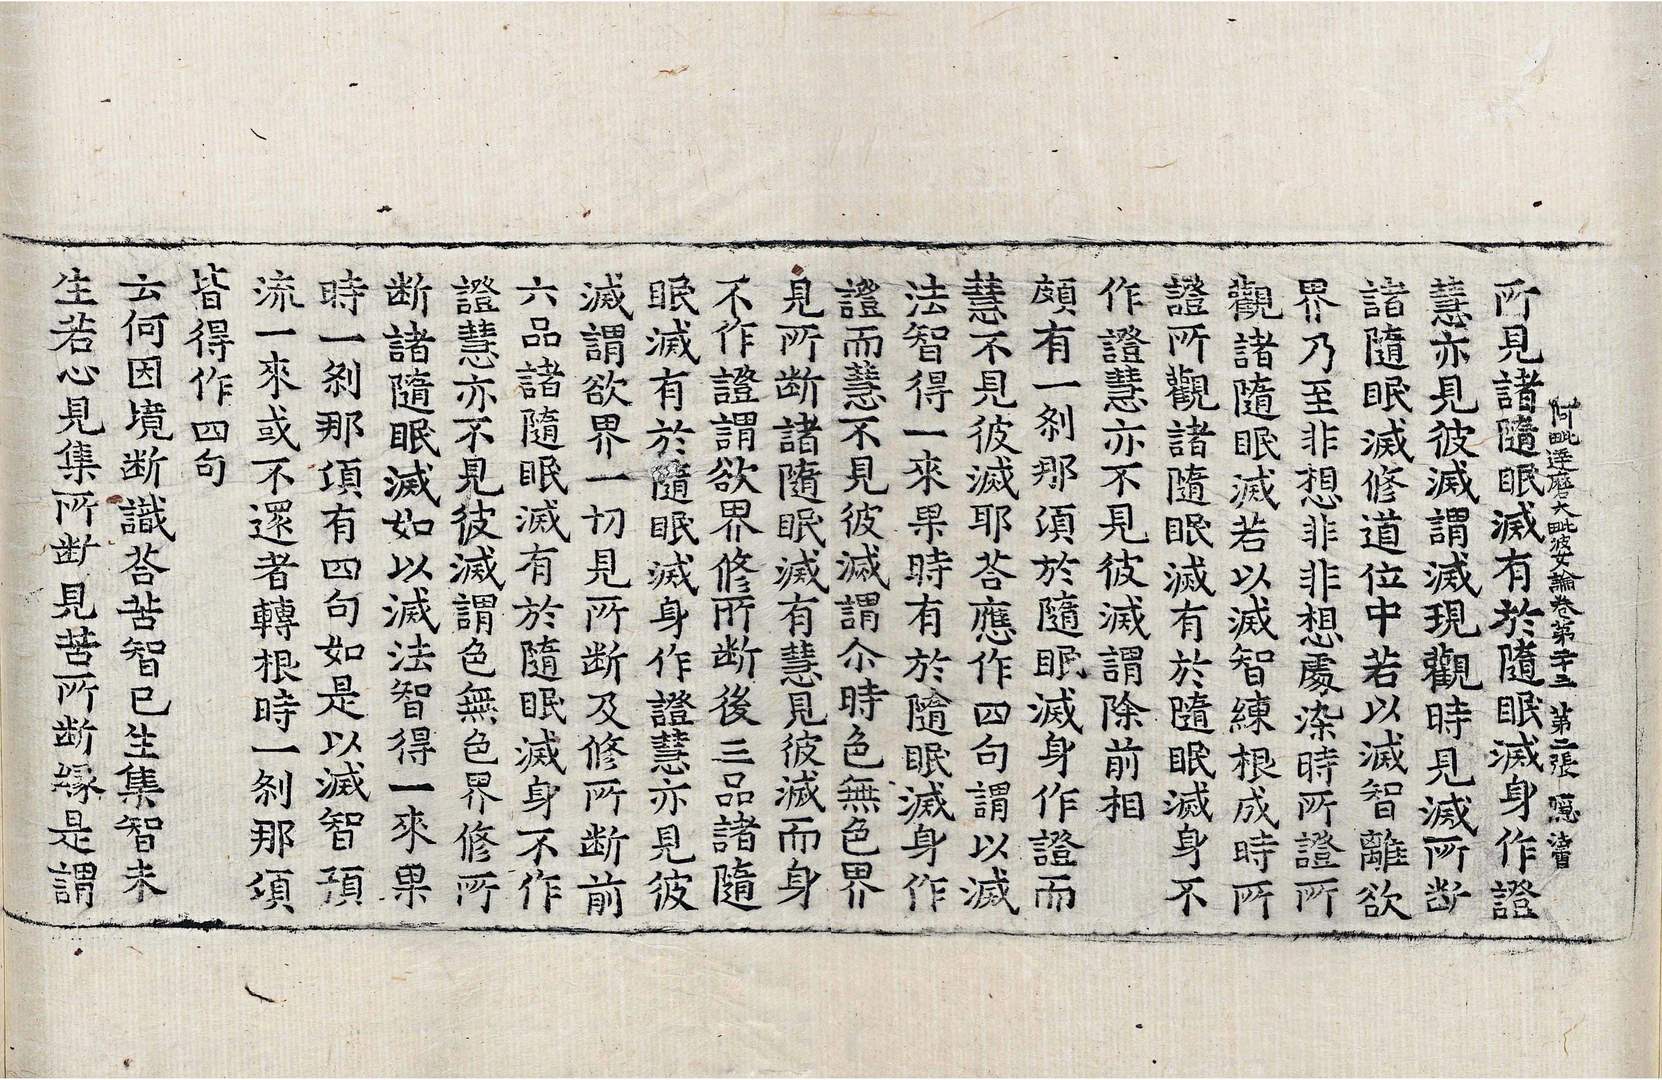 阿毗達磨大毗婆沙論卷第 第二張
所見諸隨眠滅有於隨眠滅身作證
慧亦見彼滅謂滅現觀時見滅所断
諸隨眠滅修道位中若以滅智離欲
界乃至非想非非想處染時所證所
觀諸隨眠滅若以滅智練根成時所
證所觀諸隨眠滅有於隨眠滅身不
作證慧亦不見彼滅謂除前相
頗有一刹那頃於隨眠滅身作證而
慧不見彼滅耶荅應作四句謂以滅
法智得一來果時有於隨眠滅身作
證而慧不見彼滅謂尒時色無色界
見所断諸隨眠滅有慧見彼滅而身
不作證謂欲界修所断後三品諸隨
眠滅有於隨眠滅身作證慧亦見彼
滅謂欲界一切見所断及修所断前
六品諸隨眠滅有於隨眠滅身不作
證慧亦不見彼滅謂色無色界修所
断諸隨眠滅如以滅法智得一來果
時一刹那項有四句如是以滅智預
流一來或不還者轉根時一刹那頃
皆得作四句
云何因境断識荅苦智已生集智未
生若心見集所断見苦所断緣是謂